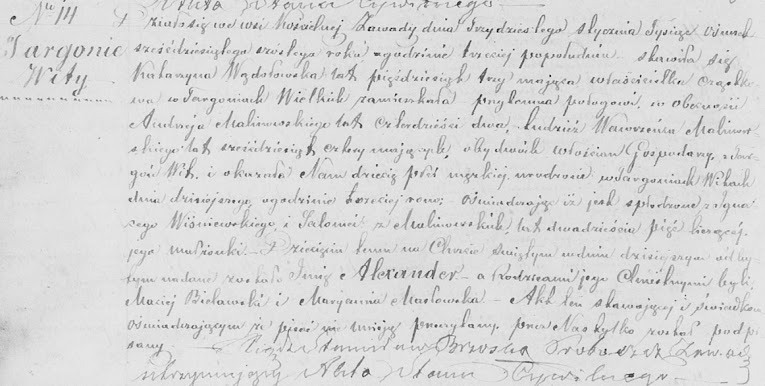 Akta Stanu Cywilnego
No 14
Targonie
Wity
Działo się we wsi Kościelnej Zawady dnia Trzydziestego stycznia Tysiąc ośmset
sześćdziesiątego szóstego roku o godzinie trzeciej popołudniu stawiła się
Katarzyna Wądołowska lat pięćdziesiąt trzy mająca właścicielka cząstko-
wa w Targoniach Wielkich zamieszkała przytomna połogowi, w obecności
Andrzeja Malinowskiego lat czterdzieści dwa, tudzież Wawrzeńca Malinow-
skiego lat sześćdziesiąt cztery mających, obydwóch włościan Gospodarzy z Tar-
goń Wit, i okazała Nam dziecię płci męzkiej urodzone w Targoniach Witach
dnia dzisiejszego o godzinie trzeciej rano; oświadczając iż jest spłodzone z Igna-
cego Wiśniewskiego i Salomei z Malinowskich, lat dwadzieścia pięć liczącej,
jego małżonki. Dziecięciu temu na Chrzcie świętym w dniu dzisiejszym odby-
tym nadane zostało Imię Alexander a Rodzicami jego Chrzestnymi byli
Maciej Bielawski i Maryanna Masłowska. Akt ten stawającej i świadkom
oświadczającym że pisać nie umieją przeczytany, przez Nas tylko został podpi-
sany.
Xiądz Stanisław Proboszcz Zawad
utrzymujący Akta Stanu Cywilnego